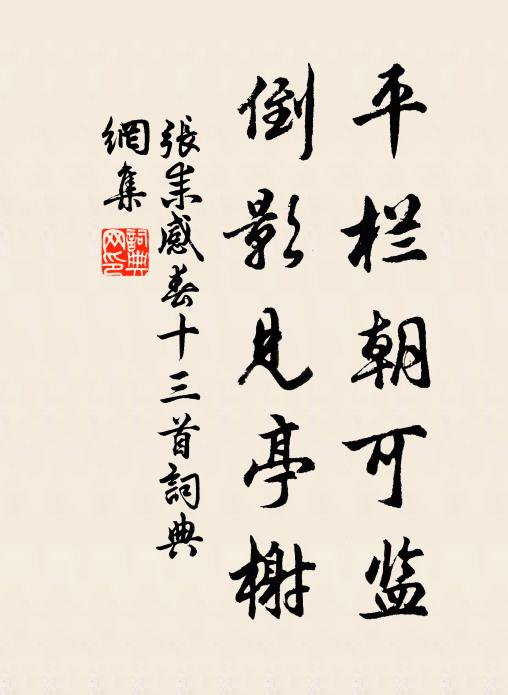 平栏朝可监
倒影見亭榭
張耒感春十三首詞典
網集
詞典
网印